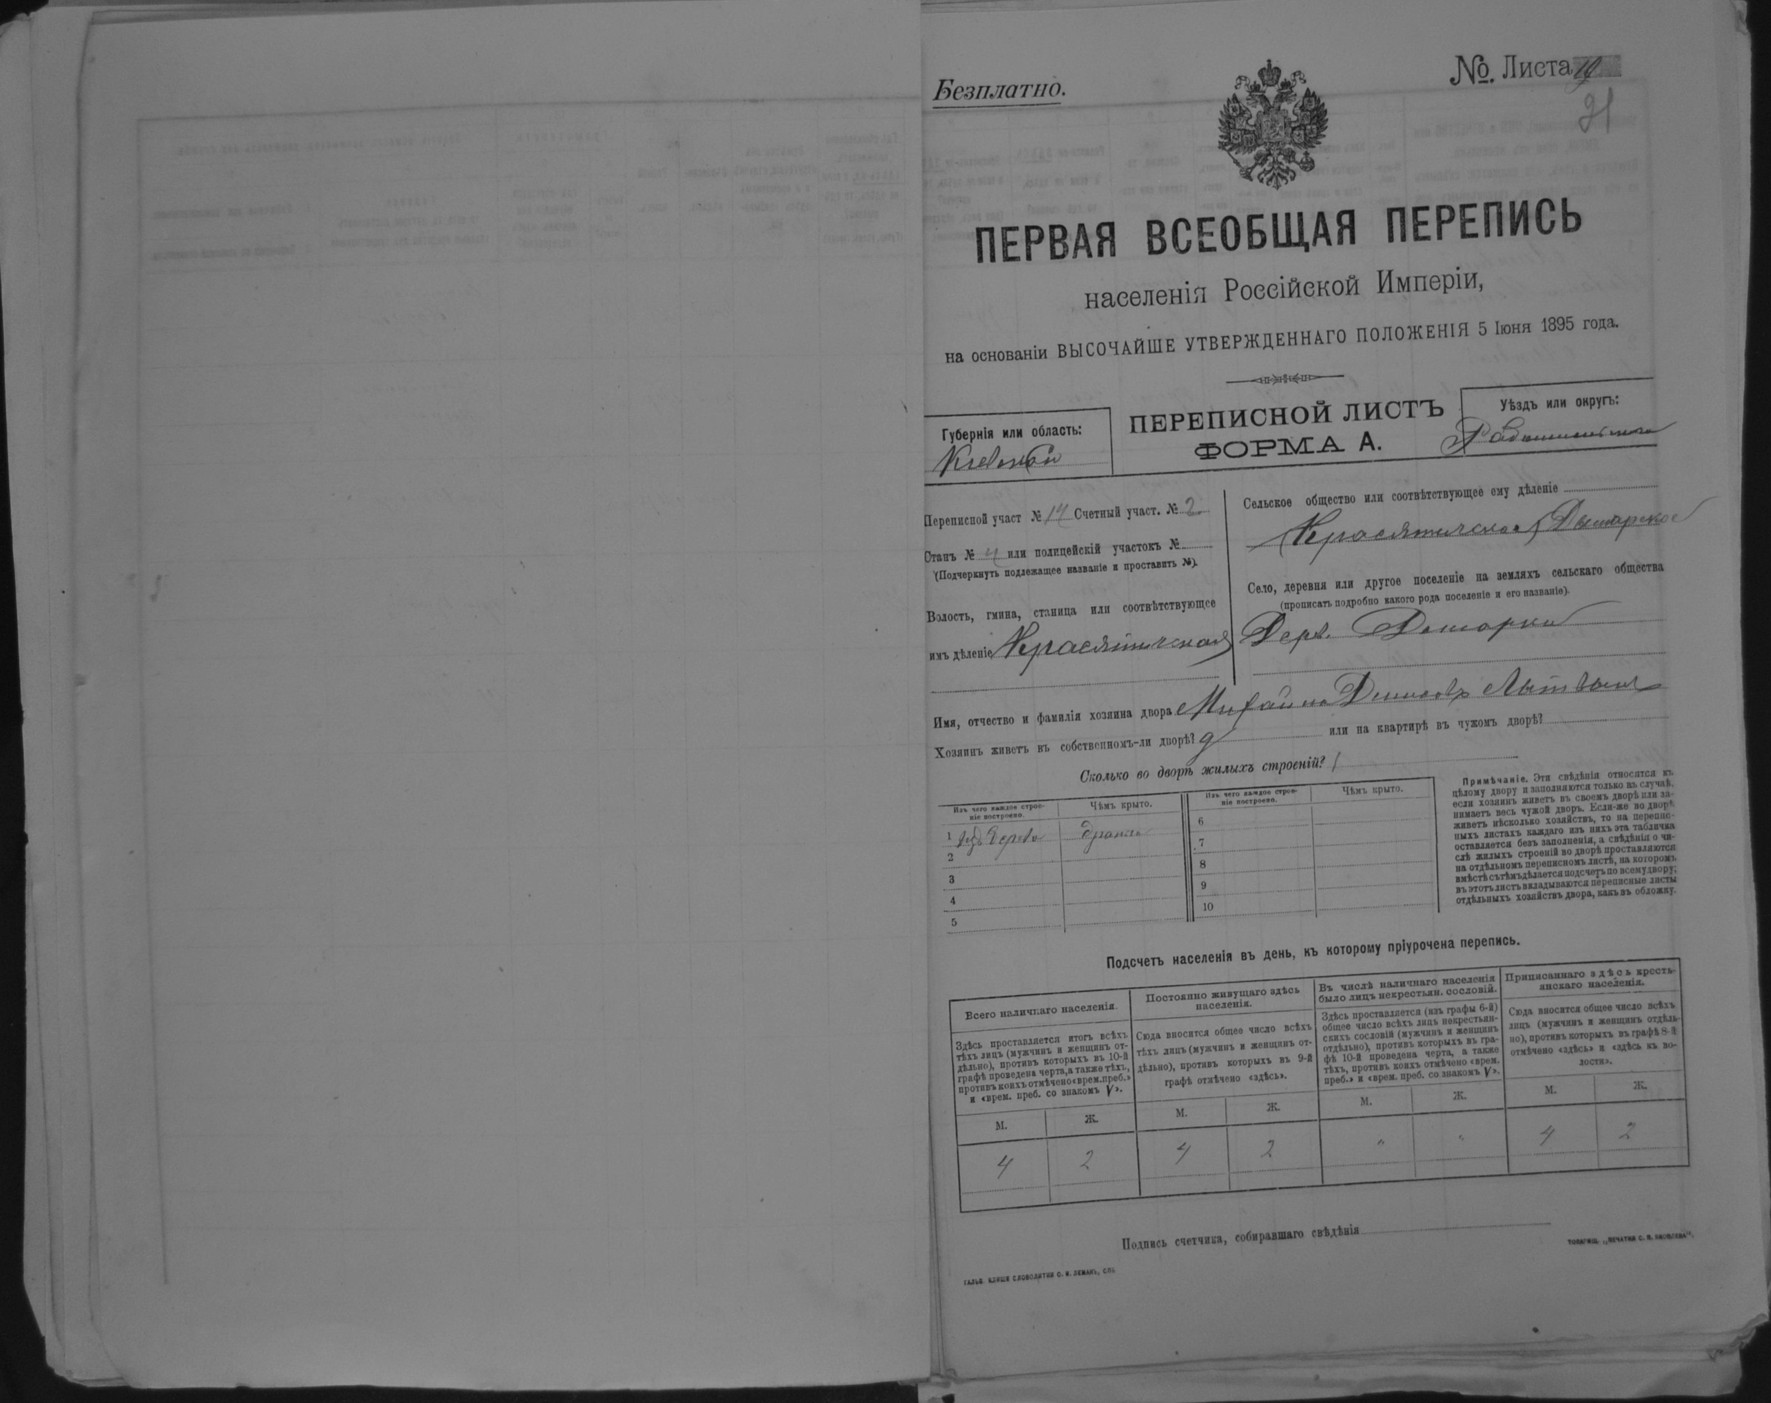 Безплатно.
№. Листа 19
91
ПЕРВАЯ ВСЕОБЩАЯ ПЕРЕПИСЬ
населенія Россійской Имперіи,
на основаніи ВЫСОЧАЙШЕ УТВЕРЖДЕННАГО ПОЛОЖЕНІЯ 5 Іюня 1895 года.
ПЕРЕПИСНОЙ ЛИСТЪ
ФОРМА А.
Губернія или область:
Кіевская
Уѣздъ или округъ:
Переписной участ № 14 Счетный участ. № 2
Станъ № 4 или полицейскій участокъ №
(Подчеркнуть подлежащее названіе и проставить №).
Волость, гмина, станица или соотвѣтствующее
имъ дѣленіе Красятичская
Сельское общество или соотвѣтствующее ему дѣленіе
Красятичское
Село, деревня или другое поселеніе на земляхъ сельскаго общества
(прописать подробно какого рода поселеніе и его названіе).
Дерв.
Имя, отчество и фамилія хозяина двора Михайло Денисовъ
Хозяинъ живетъ въ собственномъ-ли дворѣ? д или на квартирѣ въ чужомъ дворѣ?
Сколько во дворѣ жилыхъ строеній? 1
Изъ чего каждое строе-
ніе построено.
Чѣмъ крыто.
Изъ чего каждое строе-
ніе построено.
Чѣмъ крыто.
1 изъ дерева
2
3
4
5
6
7
8
9
10
Примѣчаніе. Эти свѣдѣнія относятся къ
цѣлому двору и заполняются только въ случаѣ,
если хозяинъ живетъ въ своемъ дворѣ или за-
нимаетъ весь чужой дворъ. Если-же во дворѣ
живетъ нѣсколько хозяйствъ, то на перепис-
ныхъ листахъ каждаго изъ нихъ эта табличка
оставляется безъ заполненія, а свѣдѣнія о чи-
слѣ жилыхъ строеній во дворѣ проставляются
на отдѣльномъ переписномъ листѣ, на которомъ
вмѣстѣ съ тѣмъ дѣлается подсчетъ по всему двору;
въ этотъ листъ вкладываются переписные листы
отдѣльныхъ хозяйствъ двора, какъ въ обложку.
Подсчетъ населенія въ день, къ которому пріурочена перепись.
Всего наличнаго населенія.
Здѣсь проставляется итогъ всѣхъ
тѣхъ лицъ (мужчинъ и женщинъ от-
дѣльно), противъ которыхъ въ 10-й
графѣ проведена черта, а также тѣхъ,
противъ коихъ отмѣчено «врем. преб.»
и «врем. преб. со знакомъ V».
Постоянно живущаго здѣсь
населенія.
Сюда вносится общее число всѣхъ
тѣхъ лицъ (мужчинъ и женщинъ от-
дѣльно), противъ которыхъ въ 9-й
графѣ отмѣчено «здѣсь».
Въ числѣ наличнаго населенія
было лицъ некрестьян. сословій.
Здѣсь проставляется (изъ графы 6-й)
общее число всѣхъ лицъ некрестьян-
скихъ сословій (мужчинъ и женщинъ
отдѣльно), противъ которыхъ въ гра-
фѣ 10-й проведена черта, а также
тѣхъ, противъ коихъ отмѣчено «врем.
преб.» и «врем. преб. со знакомъ V».
Приписаннаго здѣсь кресть-
янскаго населенія.
Сюда вносится общее число всѣхъ
лицъ (мужчинъ и женщинъ отдѣль-
но), противъ которыхъ въ графѣ 8-й
отмѣчено «здѣсь» и «здѣсь въ во-
лости».
М. Ж. М. Ж. М. Ж. М. Ж.
4 2 4 2 " " 4 2
Подпись счетчика, собиравшаго свѣдѣнія
ГАЛЬВ. КЛИШЕ СЛОВОЛИТНИ О. И. ЛЕМАНЪ, СПБ.
ТОВАРИЩ. „ПЕЧАТНЯ С. П. ЯКОВЛЕВА“.